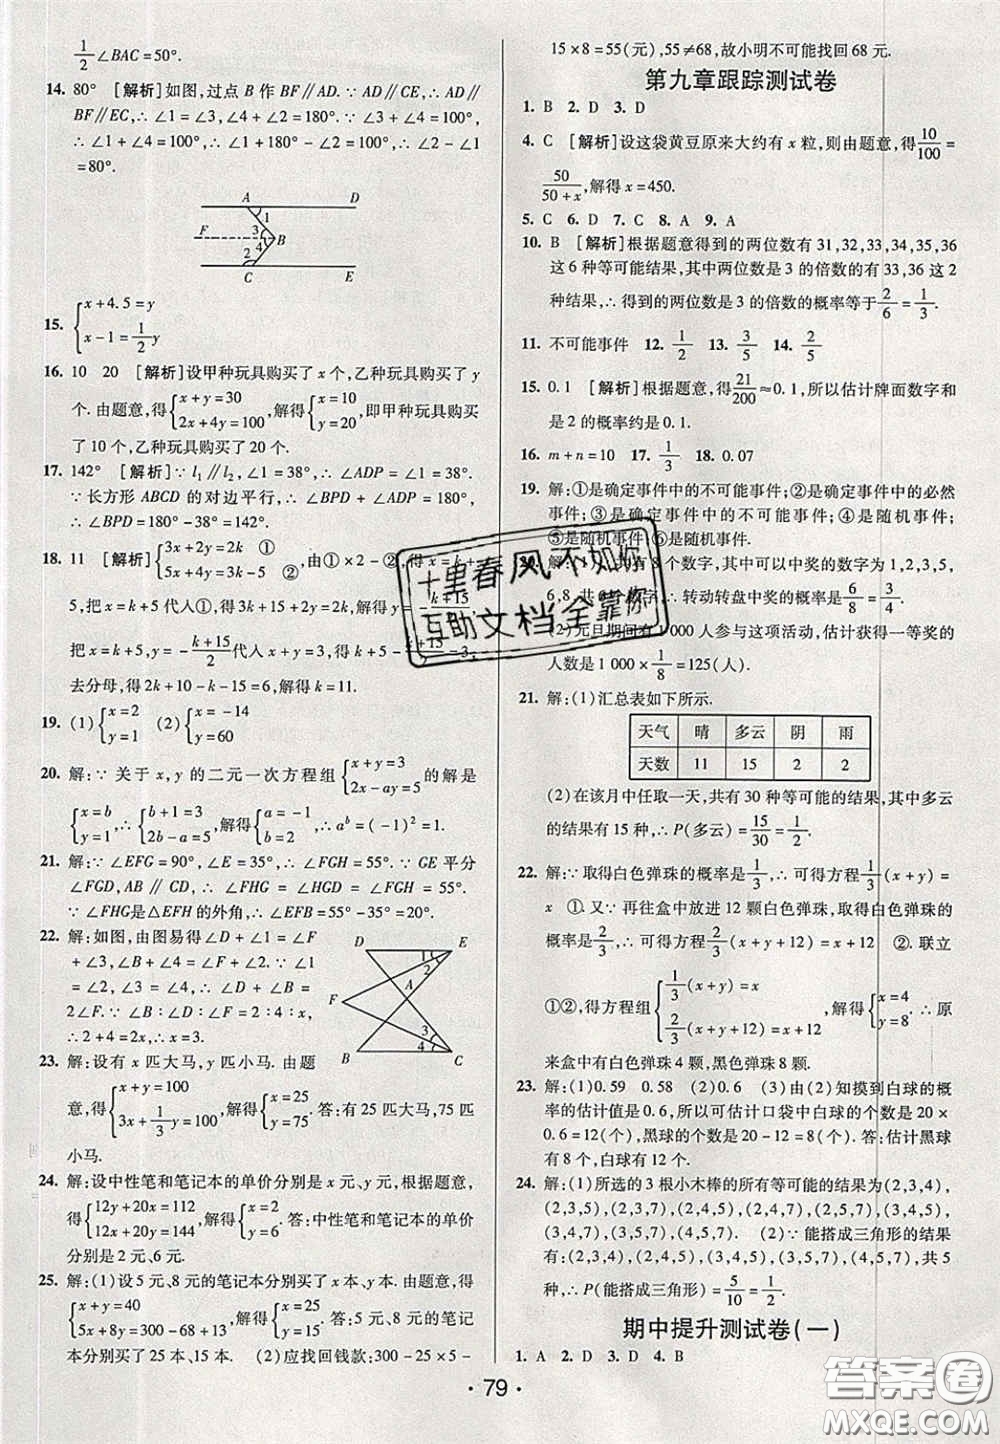 1/2∠BAC=50°.
14. 80° [解析]如图,过点 B 作 BF∥AD.∵AD∥CE,∴AD∥
BF∥EC,∴∠1=∠3,∠4+∠2=180°.∵∠3+∠4+∠1
=180°,∴∠4+∠1=180°-∠1=180°-∠2-∠1
=80°.
A D
1
F 3 B
4
2
C E
15. {x+4.5=y
x-1=1/2y
16. 10 20 [解析]设甲种玩具购买了 x 个,乙种玩具购买了 y
个.由题意,得{x+y=30 2x+4y=100,解得{x=10 y=20,即甲种玩具购买
了 10 个,乙种玩具购买了 20 个.
17. 142° [解析]∵l₁∥l₂,∠1=38°,∴∠ADP=∠1=38°.
∵长方形 ABCD 的对边平行,∴∠BPD+∠ADP=180°,
∴∠BPD=180°-38°=142°.
18. 11 [解析]{3x+2y=2k ① 5x+4y=k+5 ②,由①×2-②,得 x=k+
5,把 x=k+5 代入①,得 3k+15+2y=2k,解得 y=-(k+15)/2,
把 x=k+5,y=-(k+15)/2代入 x+y=3,得 k+5-(k+15)/2=3,
去分母,得 2k+10-k-15=6,解得 k=11.
19. (1){x=2 y=1 (2){x=-14 y=60
20. 解:∵关于 x,y 的二元一次方程组{x+y=3 2x-ay=5的解是
{x=b y=1,∴{b+1=3 2b-a=5,解得{a=-1 b=2,∴aᵇ=(-1)²=1.
21. 解:∵∠EFG=90°,∠E=35°,∴∠FGH=55°.∵GE 平分
∠FGD,AB∥CD,∴∠FHG=∠HGD=∠FGH=55°.
∵∠FHG是△EFH 的外角,∴∠EFB=55°-35°=20°.
22. 解:如图,由图易得∠D+∠1=∠F
+∠3,∠B+∠4=∠F+∠2,又∵∠1
=∠2,∠3=∠4,∴∠D+∠B=
2∠F.∵∠B∶∠D∶∠F=2∶4∶x,
∴2+4=2x,∴x=3.
D E
1
2
A
F
3
4
B C
23. 解:设有 x 匹大马,y 匹小马.由题
意,得{x+y=100 3x+1/3y=100,解得{x=25 y=75.答:有 25 匹大马,75 匹
小马.
24. 解:设中性笔和笔记本的单价分别是 x 元、y 元,根据题意,
得{12y+20x=112 12x+20y=144,解得{x=2 y=6.答:中性笔和笔记本的单价
分别是 2 元、6 元.
25. 解:(1)设 5 元、8 元的笔记本分别买了 x 本、y 本.由题意,得
{x+y=40 5x+8y=300-68+13,解得{x=25 y=15.答:5 元、8 元的笔记
本分别买了 25 本、15 本. (2)应找回钱款:300-25×5-
15×8=55(元),55≠68,故小明不可能找回 68 元.
第九章跟踪测试卷
1. B 2. D 3. D
4. C [解析]设这袋黄豆原来大约有 x 粒,则由题意,得10/100=
50/(50+x),解得 x=450.
5. C 6. D 7. C 8. A 9. A
10. B [解析]根据题意得到的两位数有 31,32,33,34,35,36
这 6 种等可能结果,其中两位数是 3 的倍数的有 33,36 这 2
种结果,∴得到的两位数是 3 的倍数的概率等于2/6=1/3.
11. 不可能事件 12. 1/2 13. 3/5 14. 2/5
15. 0.1 [解析]根据题意,得21/200≈0.1,所以估计牌面数字和
是 2 的概率约是 0.1.
16. m+n=10 17. 1/3 18. 0.07
19. 解:①是确定事件中的不可能事件;②是确定事件中的必然
事件;③是确定事件中的不可能事件;④是随机事件;
⑤是随机事件;⑥是随机事件.
解:(1)∵共有 8 个数字,其中奇数字为 1,2,3,5,
6,8,共 6 个数字,∴转动转盘中奖的概率为6/8=3/4.
(2)元旦期间有 1 000 人参与这项活动,估计获得一等奖的
人数是 1 000×1/8=125(人).
21. 解:(1)汇总表如下所示.
天气 晴 多云 阴 雨
天数 11 15 2 2
(2)在该月中任取一天,共有 30 种等可能的结果,其中多云
的结果有 15 种,∴P(多云)=15/30=1/2.
22. 解:∵取得白色弹珠的概率是1/3,∴可得方程1/3(x+y)=
x ①.又∵再往盒中放进 12 颗白色弹珠,取得白色弹珠的
概率是2/3,∴可得方程2/3(x+y+12)=x+12 ②.联立
①②,得方程组{1/3(x+y)=x 2/3(x+y+12)=x+12,解得{x=4 y=8.∴原
来盒中有白色弹珠 4 颗,黑色弹珠 8 颗.
23. 解:(1)0.59 0.58 (2)0.6 (3)由(2)知摸到白球的概
率的估计值是 0.6,所以可估计口袋中白球的个数是 20×
0.6=12(个),黑球的个数是 20-12=8(个).答:估计黑球
有 8 个,白球有 12 个.
24. 解:(1)所选的 3 根小木棒的所有等可能的结果为(2,3,4),
(2,3,5),(2,3,7),(2,4,5),(2,4,7),(2,5,7),(3,4,5),
(3,4,7),(3,5,7),(4,5,7). (2)∵能搭成三角形的结果
有:(2,3,4),(2,4,5),(3,4,5),(3,5,7),(4,5,7),共 5
种,∴P(能搭成三角形)=5/10=1/2.
期中提升测试卷(一)
1. A 2. D 3. D 4. B
· 79 ·
十里春风不如你
互助文档全靠你
答案圈
MXQE.COM